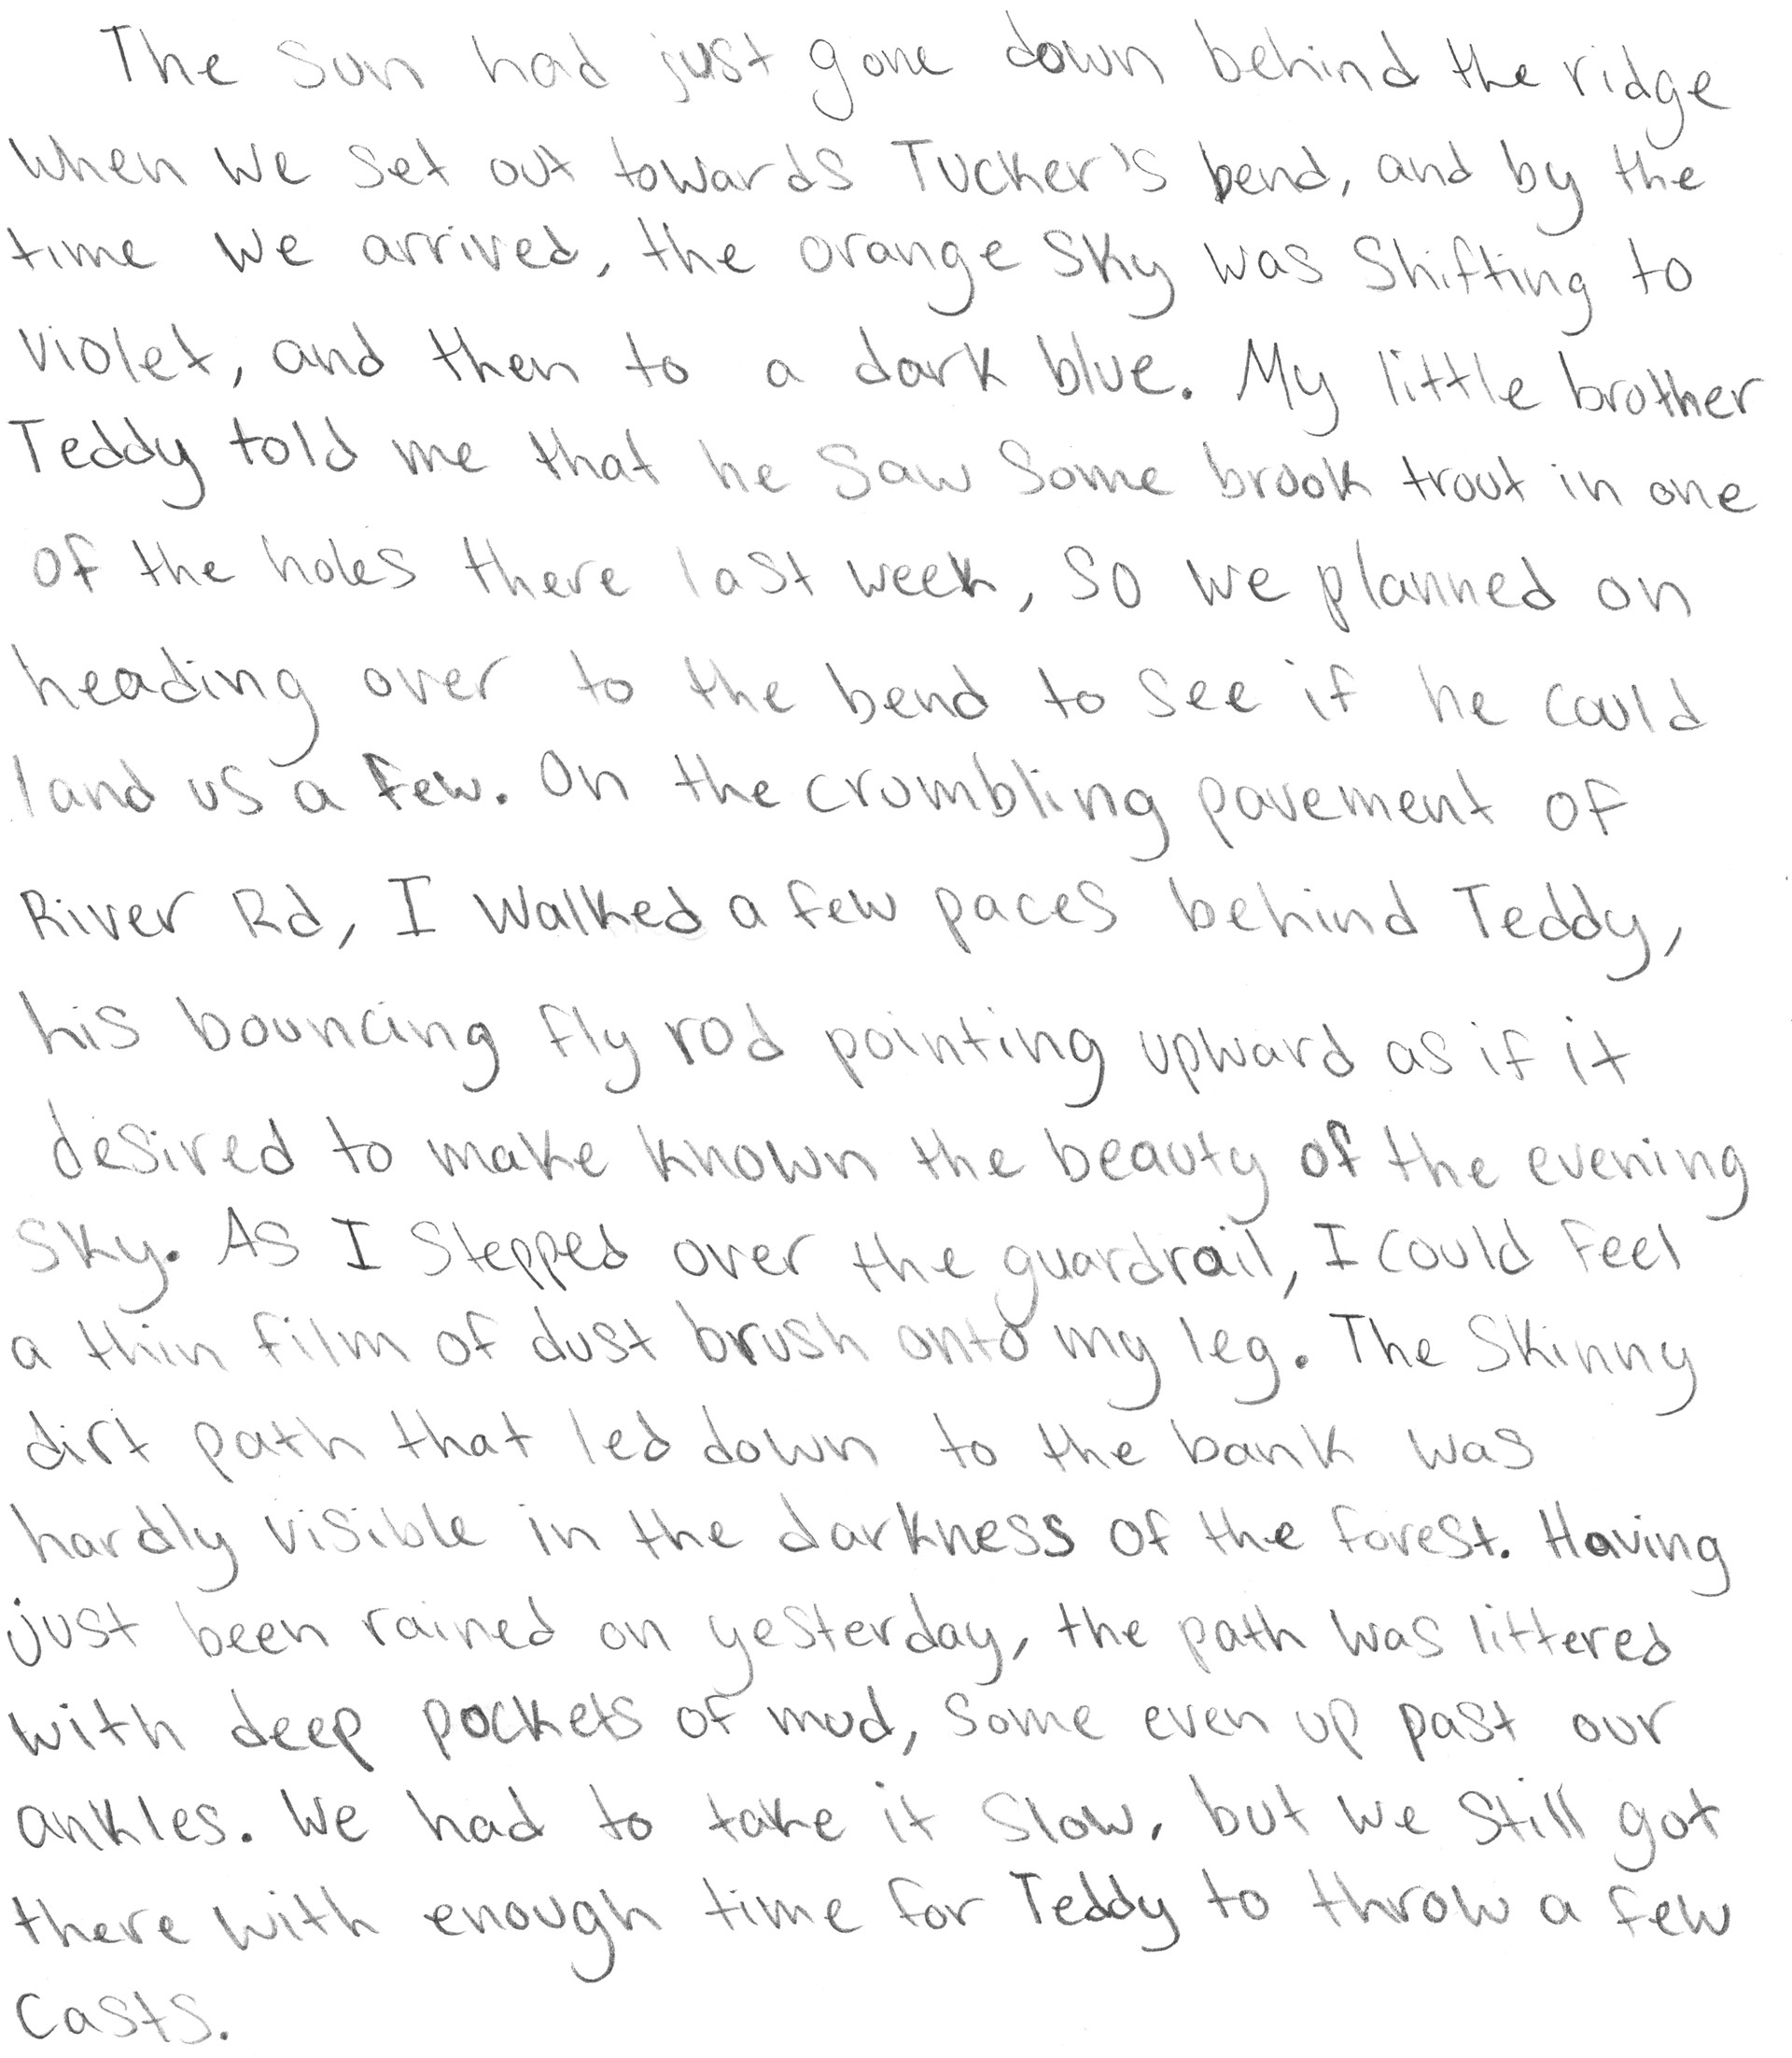 The sun had just gone down behind the ridge
when we set out towards Tucker's bend, and by the
time we arrived, the orange sky was shifting to
violet, and then to a dark blue. My little brother
Teddy told me that he saw some brook trout in one
of the holes there last week, so we planned on
heading over to the bend to see if he could
land us a few. On the crumbling pavement of
River Rd, I walked a few paces behind Teddy,
his bouncing fly rod pointing upward as if it
desired to make known the beauty of the evening
sky. As I stepped over the guardrail, I could feel
a thin film of dust brush onto my leg. The skinny
dirt path that led down to the bank was
hardly visible in the darkness of the forest. Having
just been rained on yesterday, the path was littered
with deep pockets of mud, some even up past our
ankles. We had to take it slow, but we still got
there with enough time for Teddy to throw a few
casts.